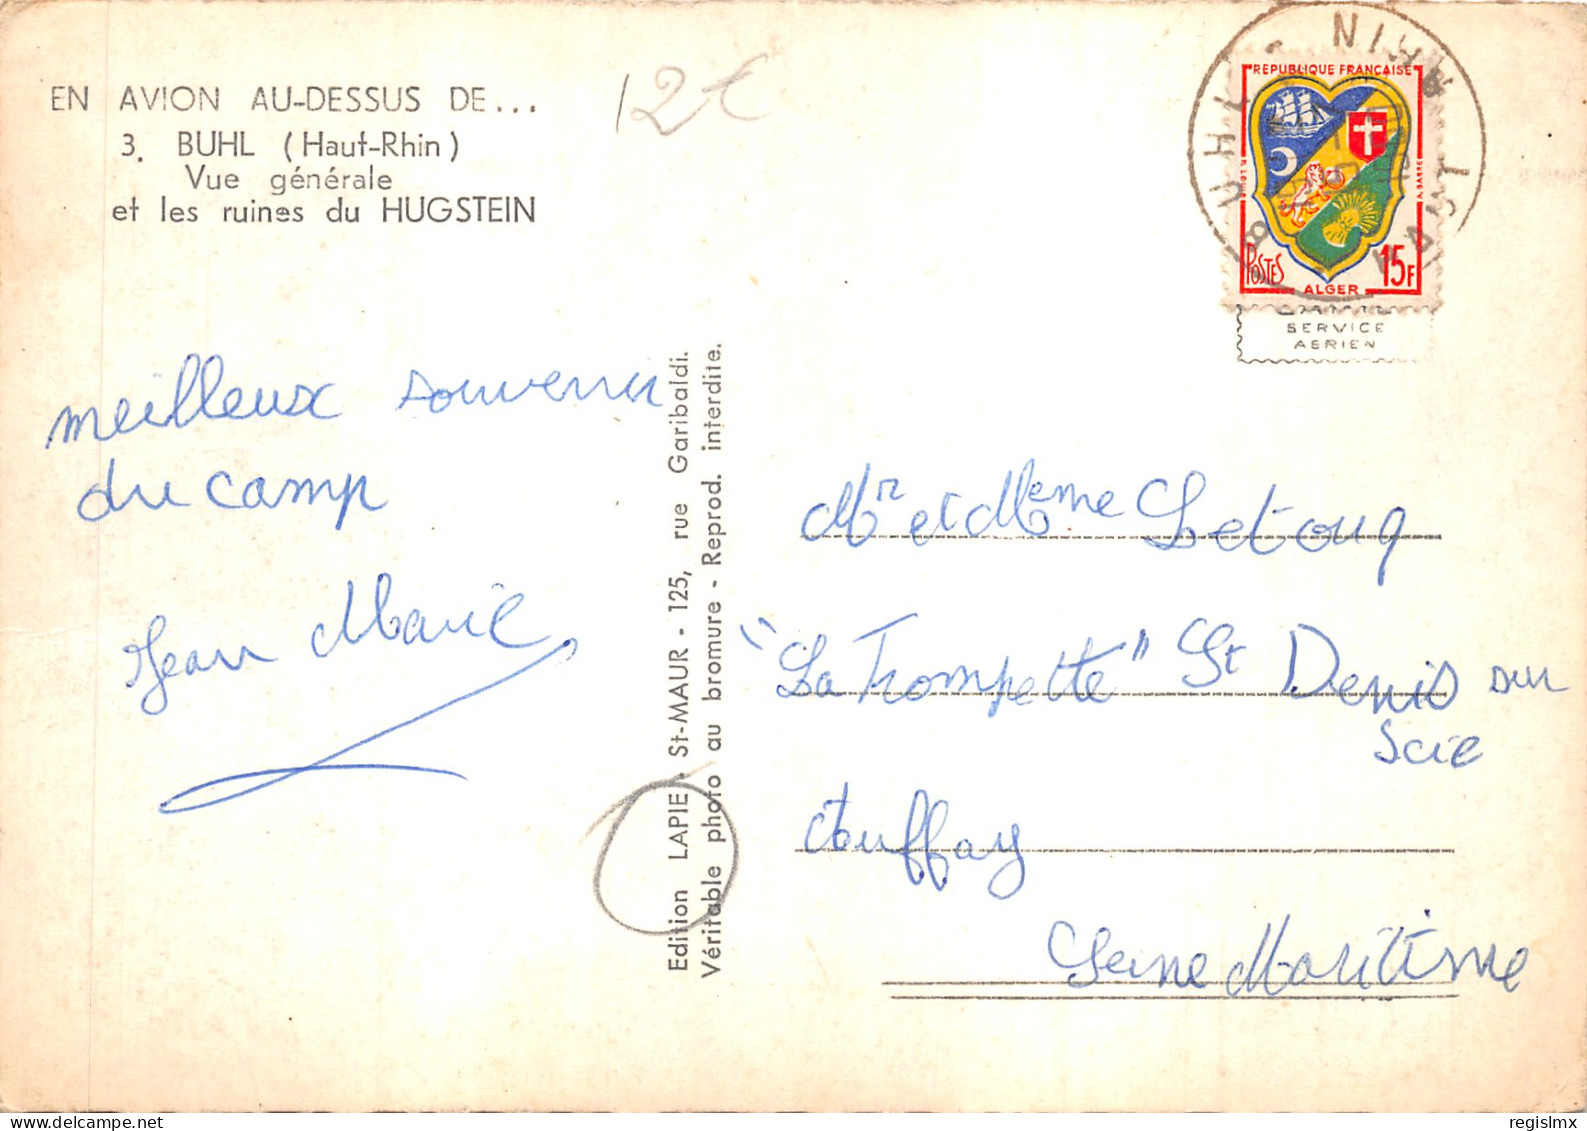 EN AVION AU-DESSUS DE...
3. BUHL (Haut-Rhin)
Vue générale
et les ruines du HUGSTEIN
12€
REPUBLIQUE FRANÇAISE
POSTES
ALGER
15F
BUHL
HT RHIN
SERVICE
AERIEN
meilleux souvenir
du camp
Jean Marie
Edition LAPIE - St-MAUR - 125, rue Garibaldi.
Véritable photo au bromure - Reprod. interdite.
Mr et Meme Letouq
"La Trompette" St Denis sur
Scie
Auffay
Seine Maritime
regislmx